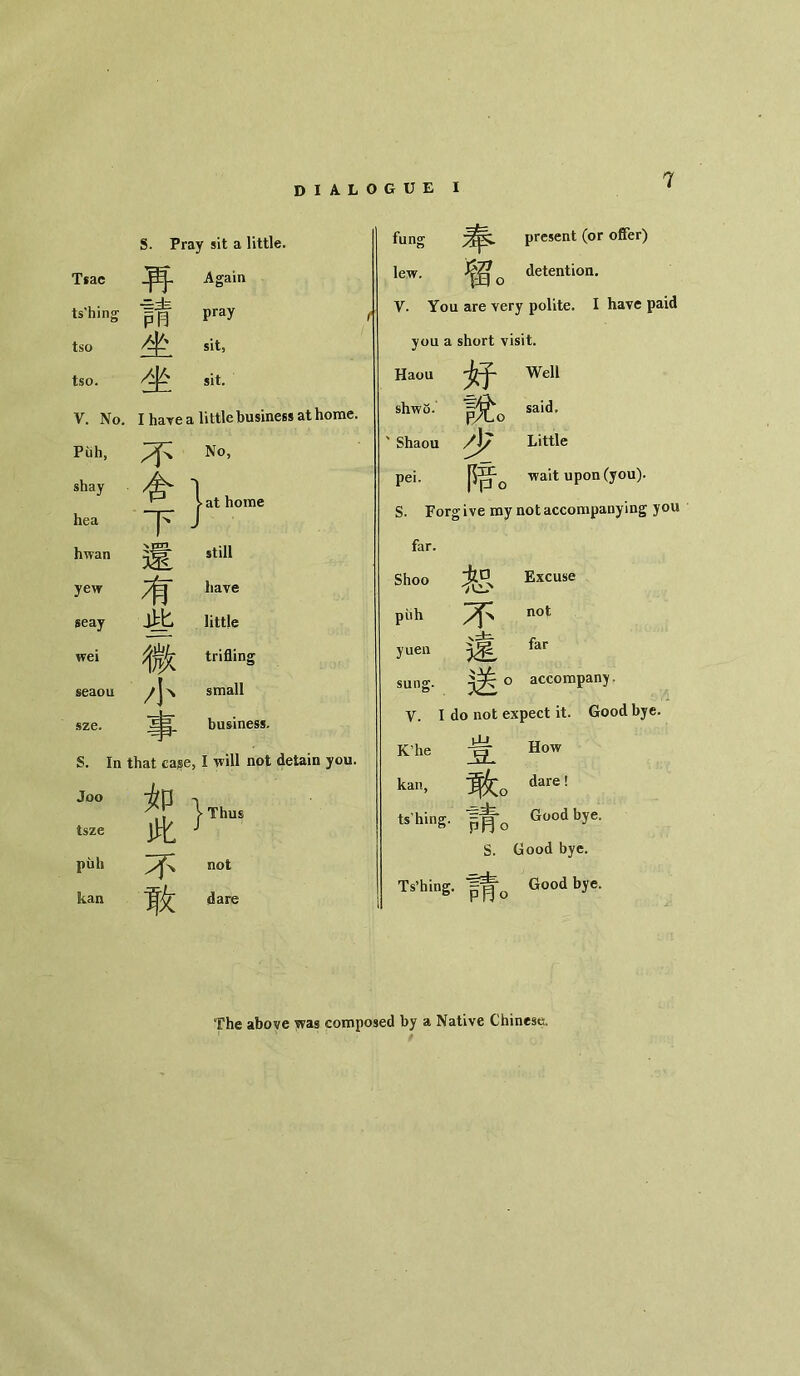 DIALOGUE I
7
S. Pray sit a little.
Tsae 再 Again
ts'hing 請 pray
tso 坐 sit,
tso. 坐 sit.
V. No. I have a little business at home.
Püh, 不 No,
shay 舍
hea 下 } at home
hwan 還 still
yew 有 have
seay 些 little
wei 微 trifling
seaou 小 small
sze. 事 business.
S. In that case, I will not detain you.
Joo 如
tsze 此 } Thus
püh 不 not
kan 敢 dare
fung 奉 present (or offer)
lew. 留。 detention.
V. You are very polite. I have paid
you a short visit.
Haou 好 Well
shwŏ. 說。 said.
Shaou 少 Little
pei. 陪。 wait upon (you).
S. Forgive my not accompanying you
far.
Shoo 恕 Excuse
püh 不 not
yuen 遠 far
sung. 送。 accompany.
V. I do not expect it. Good bye.
K'he 豈 How
kan, 敢。 dare!
ts'hing. 請。 Good bye.
S. Good bye.
Ts'hing. 請。 Good bye.
The above was composed by a Native Chinese.